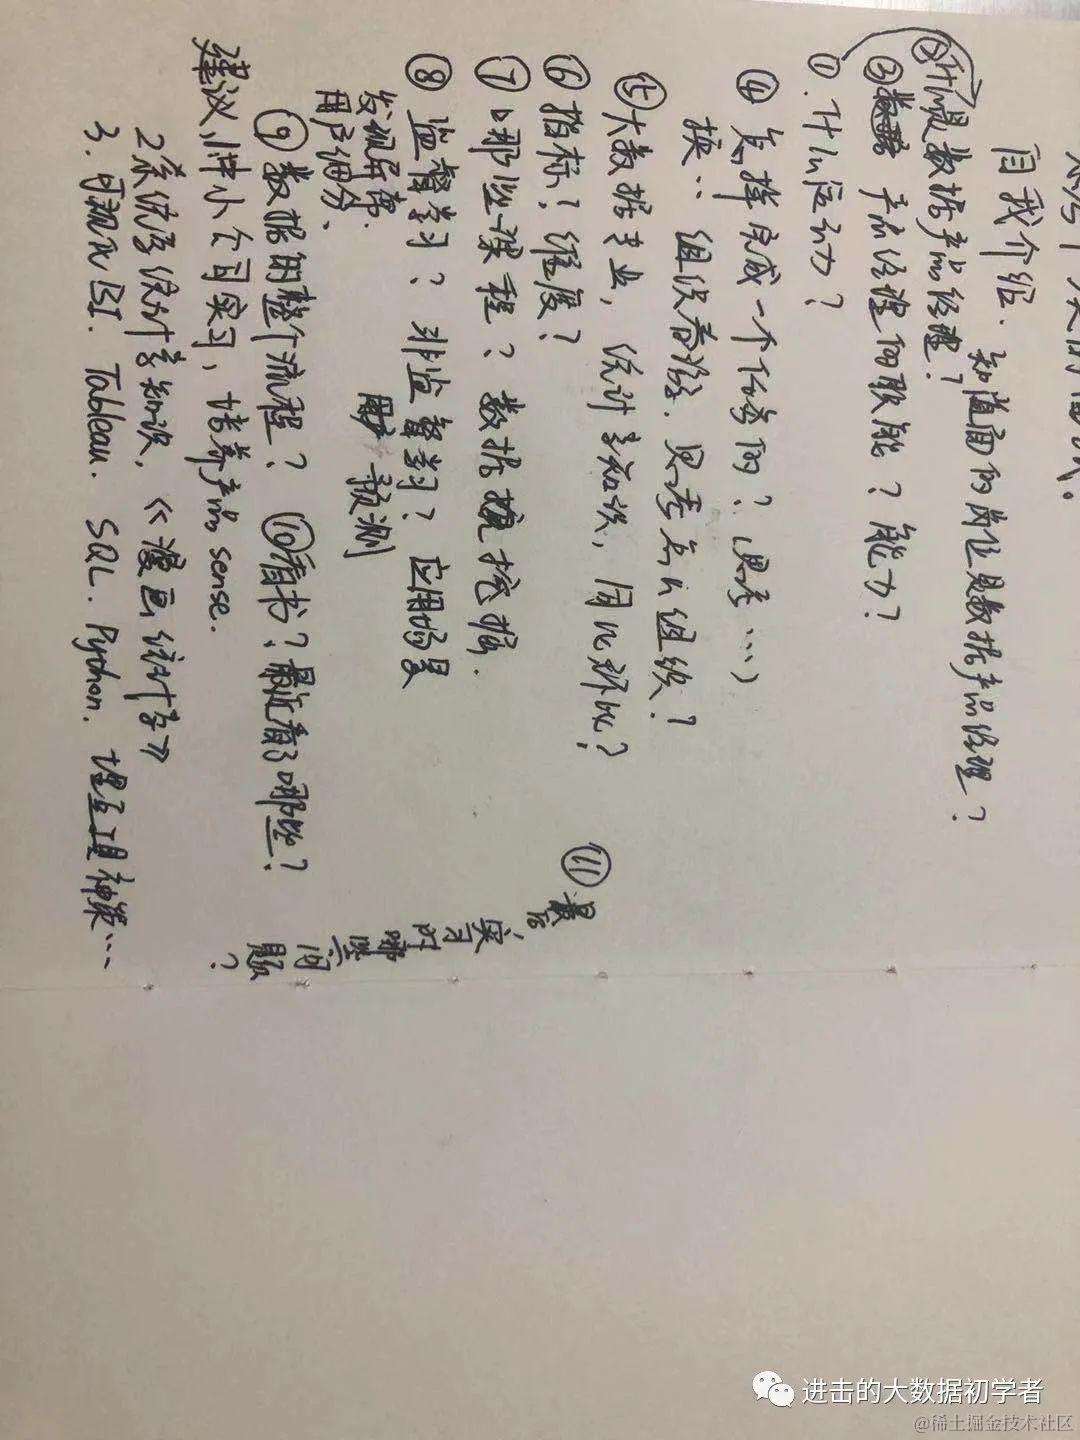 自我介绍. 知道面的岗位是数据产品经理?
②什么是数据产品经理?
③数据 产品经理的职能?能力?
①. 什么运动?
④ 怎样完成一个任务的?(思考…)
换: 组织者经. 思考怎么组织?
⑤大数据专业, 统计学知识, 同比环比?
⑥指标? 维度?
⑦ 哪些课程? 数据挖掘.
⑧ 监督学习? 非监督学习? 应用场景
用户细分. 预测
⑨数据的整个流程? ⑩看书?最近看了哪些?
⑪ 最后实习时哪些问题?
建议,1.中小公司实习, 培养产品sense.
2.系统学统计学知识,《漫画统计学》
3.可视化BI. Tableau. SQL. Python. 埋点工具神策…
进击的大数据初学者
@稀土掘金技术社区